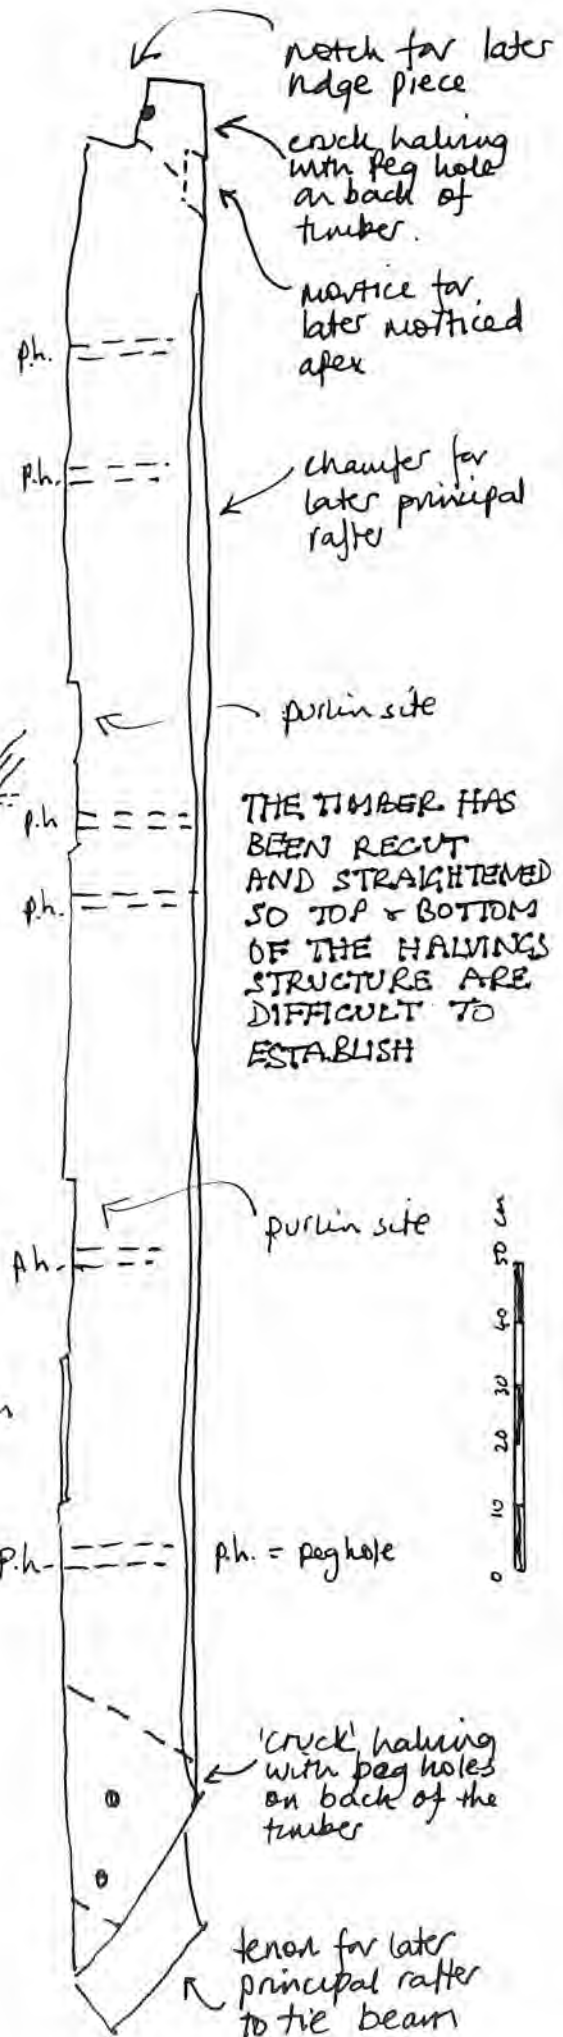 notch for later
ridge piece
cruck halving
with peg hole
on back of
timber.
mortice for
later morticed
apex
p.h.
p.h.
chamfer for
later principal
rafter
purlin site
p.h
p.h.
THE TIMBER HAS
BEEN RECUT
AND STRAIGHTENED
SO TOP & BOTTOM
OF THE HALVINGS
STRUCTURE ARE
DIFFICULT TO
ESTABLISH
purlin site
p.h.
50 cm
40
30
20
10
0
p.h.
p.h. = peghole
'cruck' halving
with peg holes
on back of the
timber
tenon for later
principal rafter
to tie beam